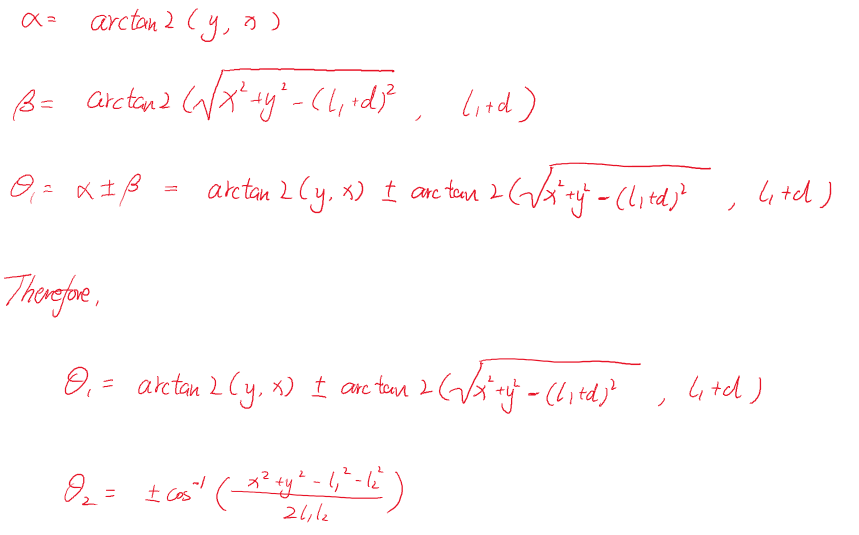 α = arctan2 (y, x)
β = arctan2 (√(x²+y²-(l₁+d)²), l₁+d)
θ₁ = α ± β = arctan2 (y, x) ± arctan2 (√(x²+y²-(l₁+d)²), l₁+d)
Therefore,
θ₁ = arctan2 (y, x) ± arctan2 (√(x²+y²-(l₁+d)²), l₁+d)
θ₂ = ± cos⁻¹ ((x²+y²-l₁²-l₂²)/(2l₁l₂))